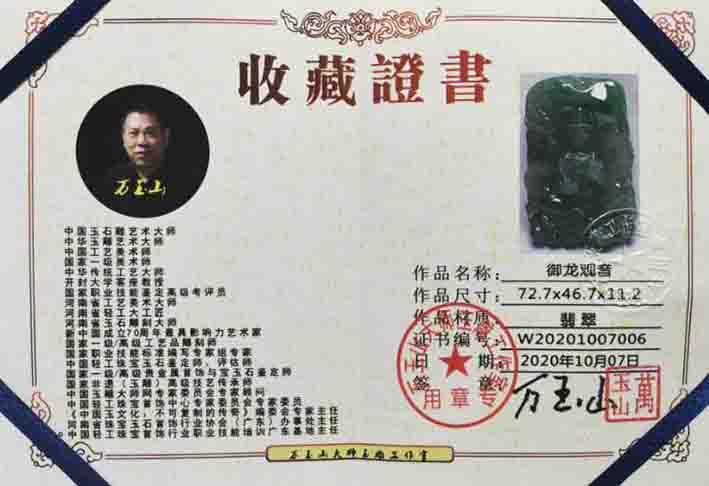 收藏證書
万玉山
中国玉石雕艺术大师
中华玉雕艺术大师
中国工艺美术师
国家一级美术师
中华传统工艺大师
开封大学客座教授
国家职业技能鉴定高级考评员
河南省工艺美术大师
河南省轻工大工匠
河南省玉石雕刻大师
新中国成立70周年最具影响力艺术家
国家一级/高级工艺品雕刻师
国家职业技能标准编写专家组专家
中国轻工级珠宝玉石鉴定师，评估师
国家一级/高级贵金属首饰与宝玉石鉴定师
国家非遗（玉雕）高级技艺传承师
中国玉雕大师网专家委员会专家顾问
中国轻工珠宝首饰中心专家委员会专家委员
《中国玉文化，不可复制的传奇》编委会专家主任
河南省珠宝玉石首饰行业协会（广东）办事处主任
中国轻工珠宝首饰行业职业技能培训广东基地主任
作品名称：御龙观音
作品尺寸：72.7x46.7x11.2
作品材质：翡翠
证书编号：W20201007006
日期：2020年10月07日
签章：万玉山
萬玉山
专章用
万玉山大师玉雕工作室